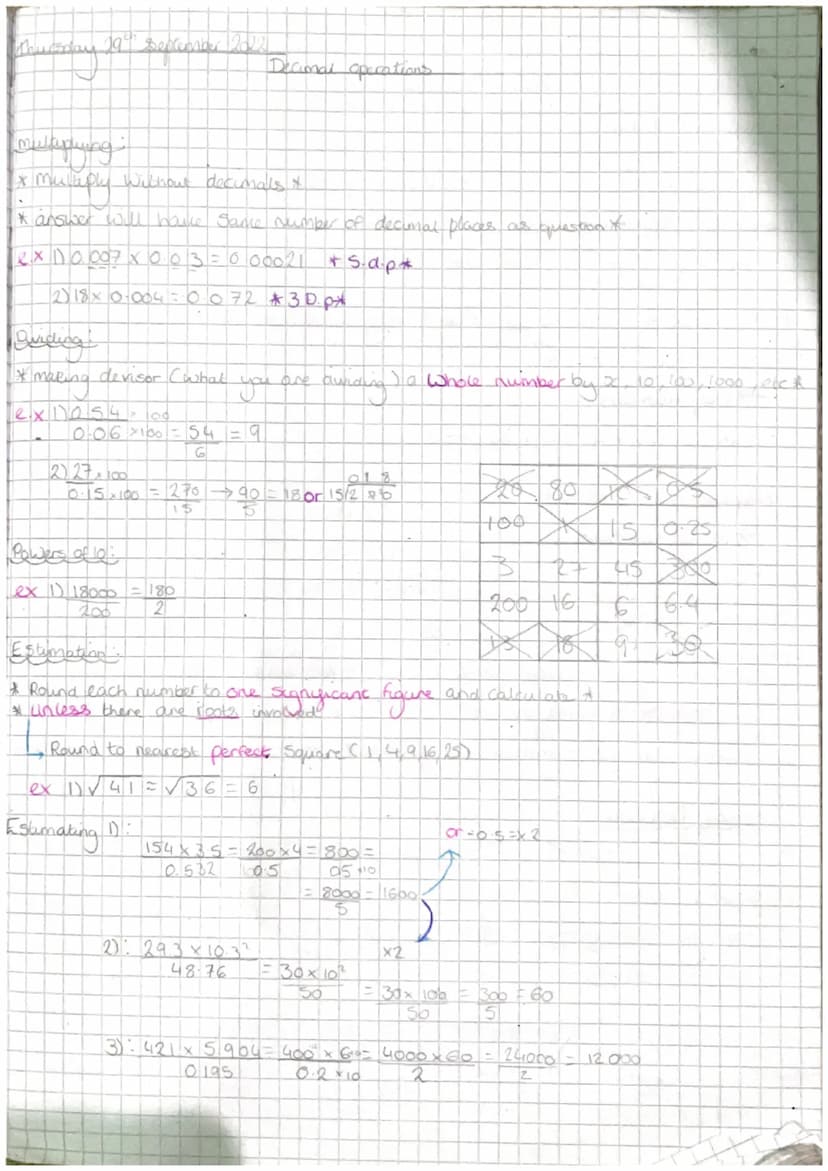 Thursday 29th September 2022
Decimal operations
Multiplying:
* multiply without decimals *
* answer will have same number of decimal places as question *
e.x 1) 0.007 x 0.03 = 0.00021 * 5.d.p *
2) 18 x 0.004 = 0.072 * 3 D.p *
Dividing:
* making devisor (what you are dividing) a whole number by x 10, 100, 1000, etc *
e.x 1) 0.54 × 100
0.06 × 100 = 54/6 = 9
2) 27 × 100
0.15 × 100 = 270/15 → 90/5 = 18 or 15/2
20 80 0.5
100 1 15 0.25
3 27 45 300
200 16 6 6.4
15 18 9 30
Powers of 10:
ex 1) 18000/200 = 180/2
Estimation:
* Round each number to one significant figure and calculate *
* unless there are roots involved
Round to nearest perfect square (1, 4, 9, 16, 25)
ex 1) √41 ≈ √36 = 6
Estimating 1):
or ÷ 0.5 = x 2
154 x 3.5 / 0.532 = 200 x 4 / 0.5 = 800 / 0.5 ×10 =
= 8000/5 = 1600
x2
2): 29.3 x 10.3² / 48.76 = 30 x 10² / 50 = 30 x 100 / 50 = 300/5 = 60
3): 421 x 5.904 / 0.195 = 400 x 6 / 0.2 ×10 = 4000 x 60 / 2 = 24000/2 = 12000